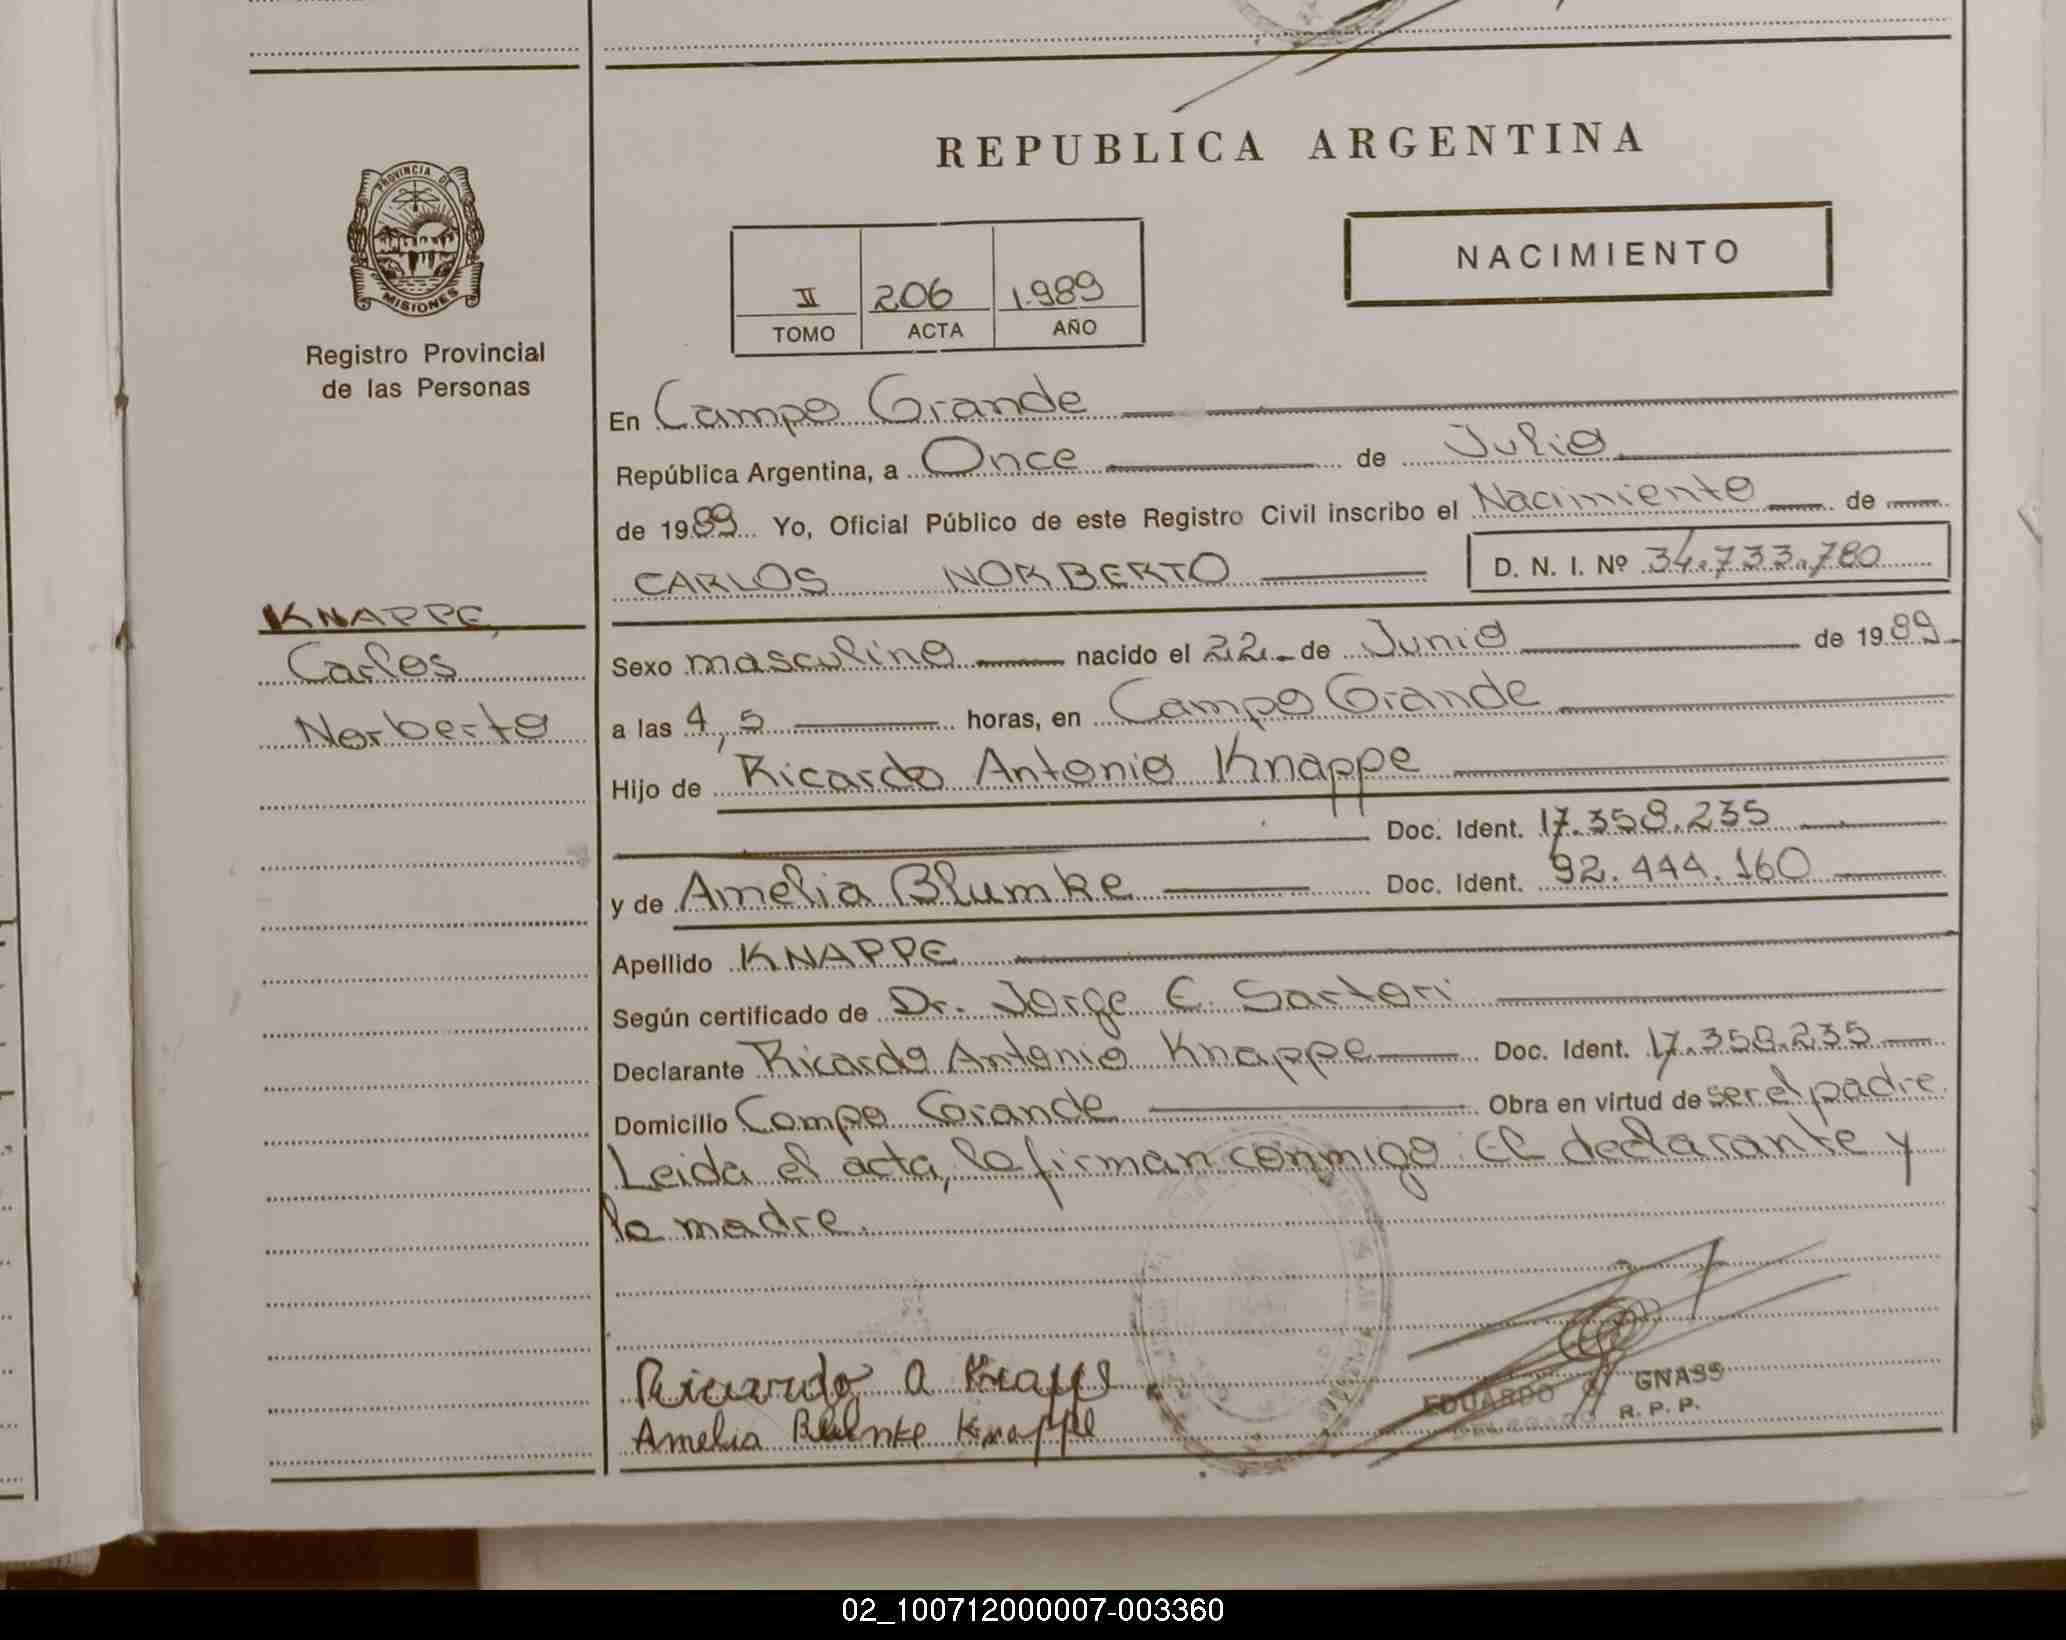 REPUBLICA ARGENTINA
PROVINCIA DE
MISIONES
Registro Provincial
de las Personas
NACIMIENTO
II 206 1.989
TOMO ACTA AÑO
En Campo Grande
República Argentina, a Once de Julio
de 1989 Yo, Oficial Público de este Registro Civil inscribo el Nacimiento de
CARLOS NORBERTO D. N. I. Nº 34.733.780
KNAPPE,
Carlos
Norberto
Sexo masculino nacido el 22 de Junio de 1989
a las 4,5 horas, en Campo Grande
Hijo de Ricardo Antonio Knappe
Doc. Ident. 17.358.235
y de Amelia Blumke Doc. Ident. 92.444.160
Apellido KNAPPE
Según certificado de Dr. Jorge C. Sartori
Declarante Ricardo Antonio Knappe Doc. Ident. 17.358.235
Domicilio Campo Grande Obra en virtud de ser el padre.
Leida el acta, la firman conmigo: El declarante y
la madre.
Ricardo A Knappe
Amelia Blumke Knappe
EDUARDO GNASS
R. P. P.
02_100712000007-003360